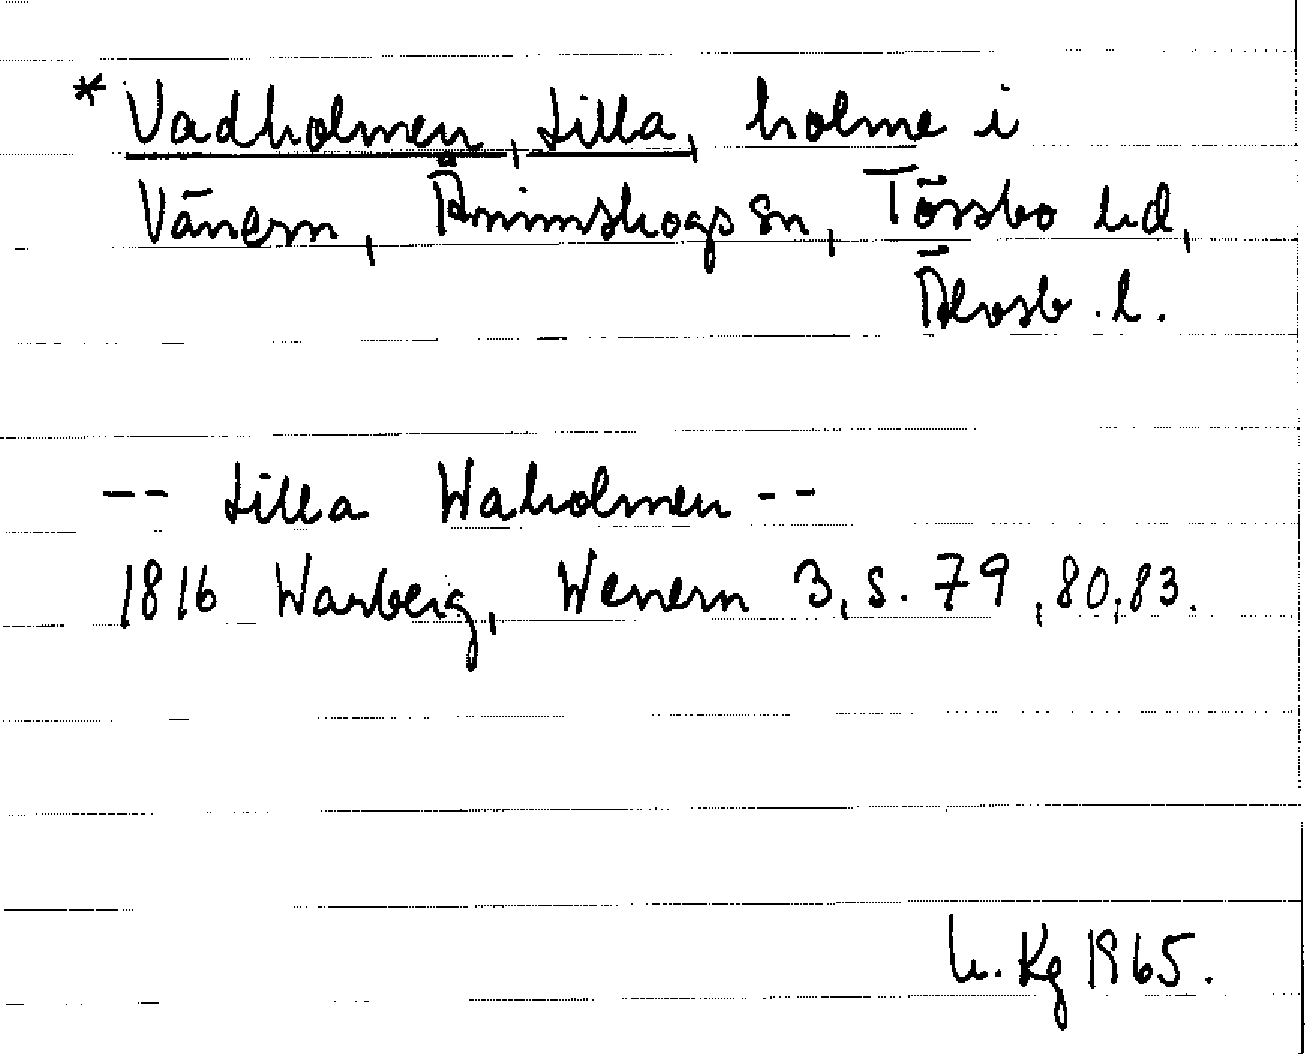 * Vadholmen, Lilla, holme i
Vänern, Ånimskogs sn, Tössbo hd,
Älvsb. l.
-- Lilla Waholmen --
1816 Warberg, Wenern 3, s. 79, 80, 83.
h. Kg 1965.